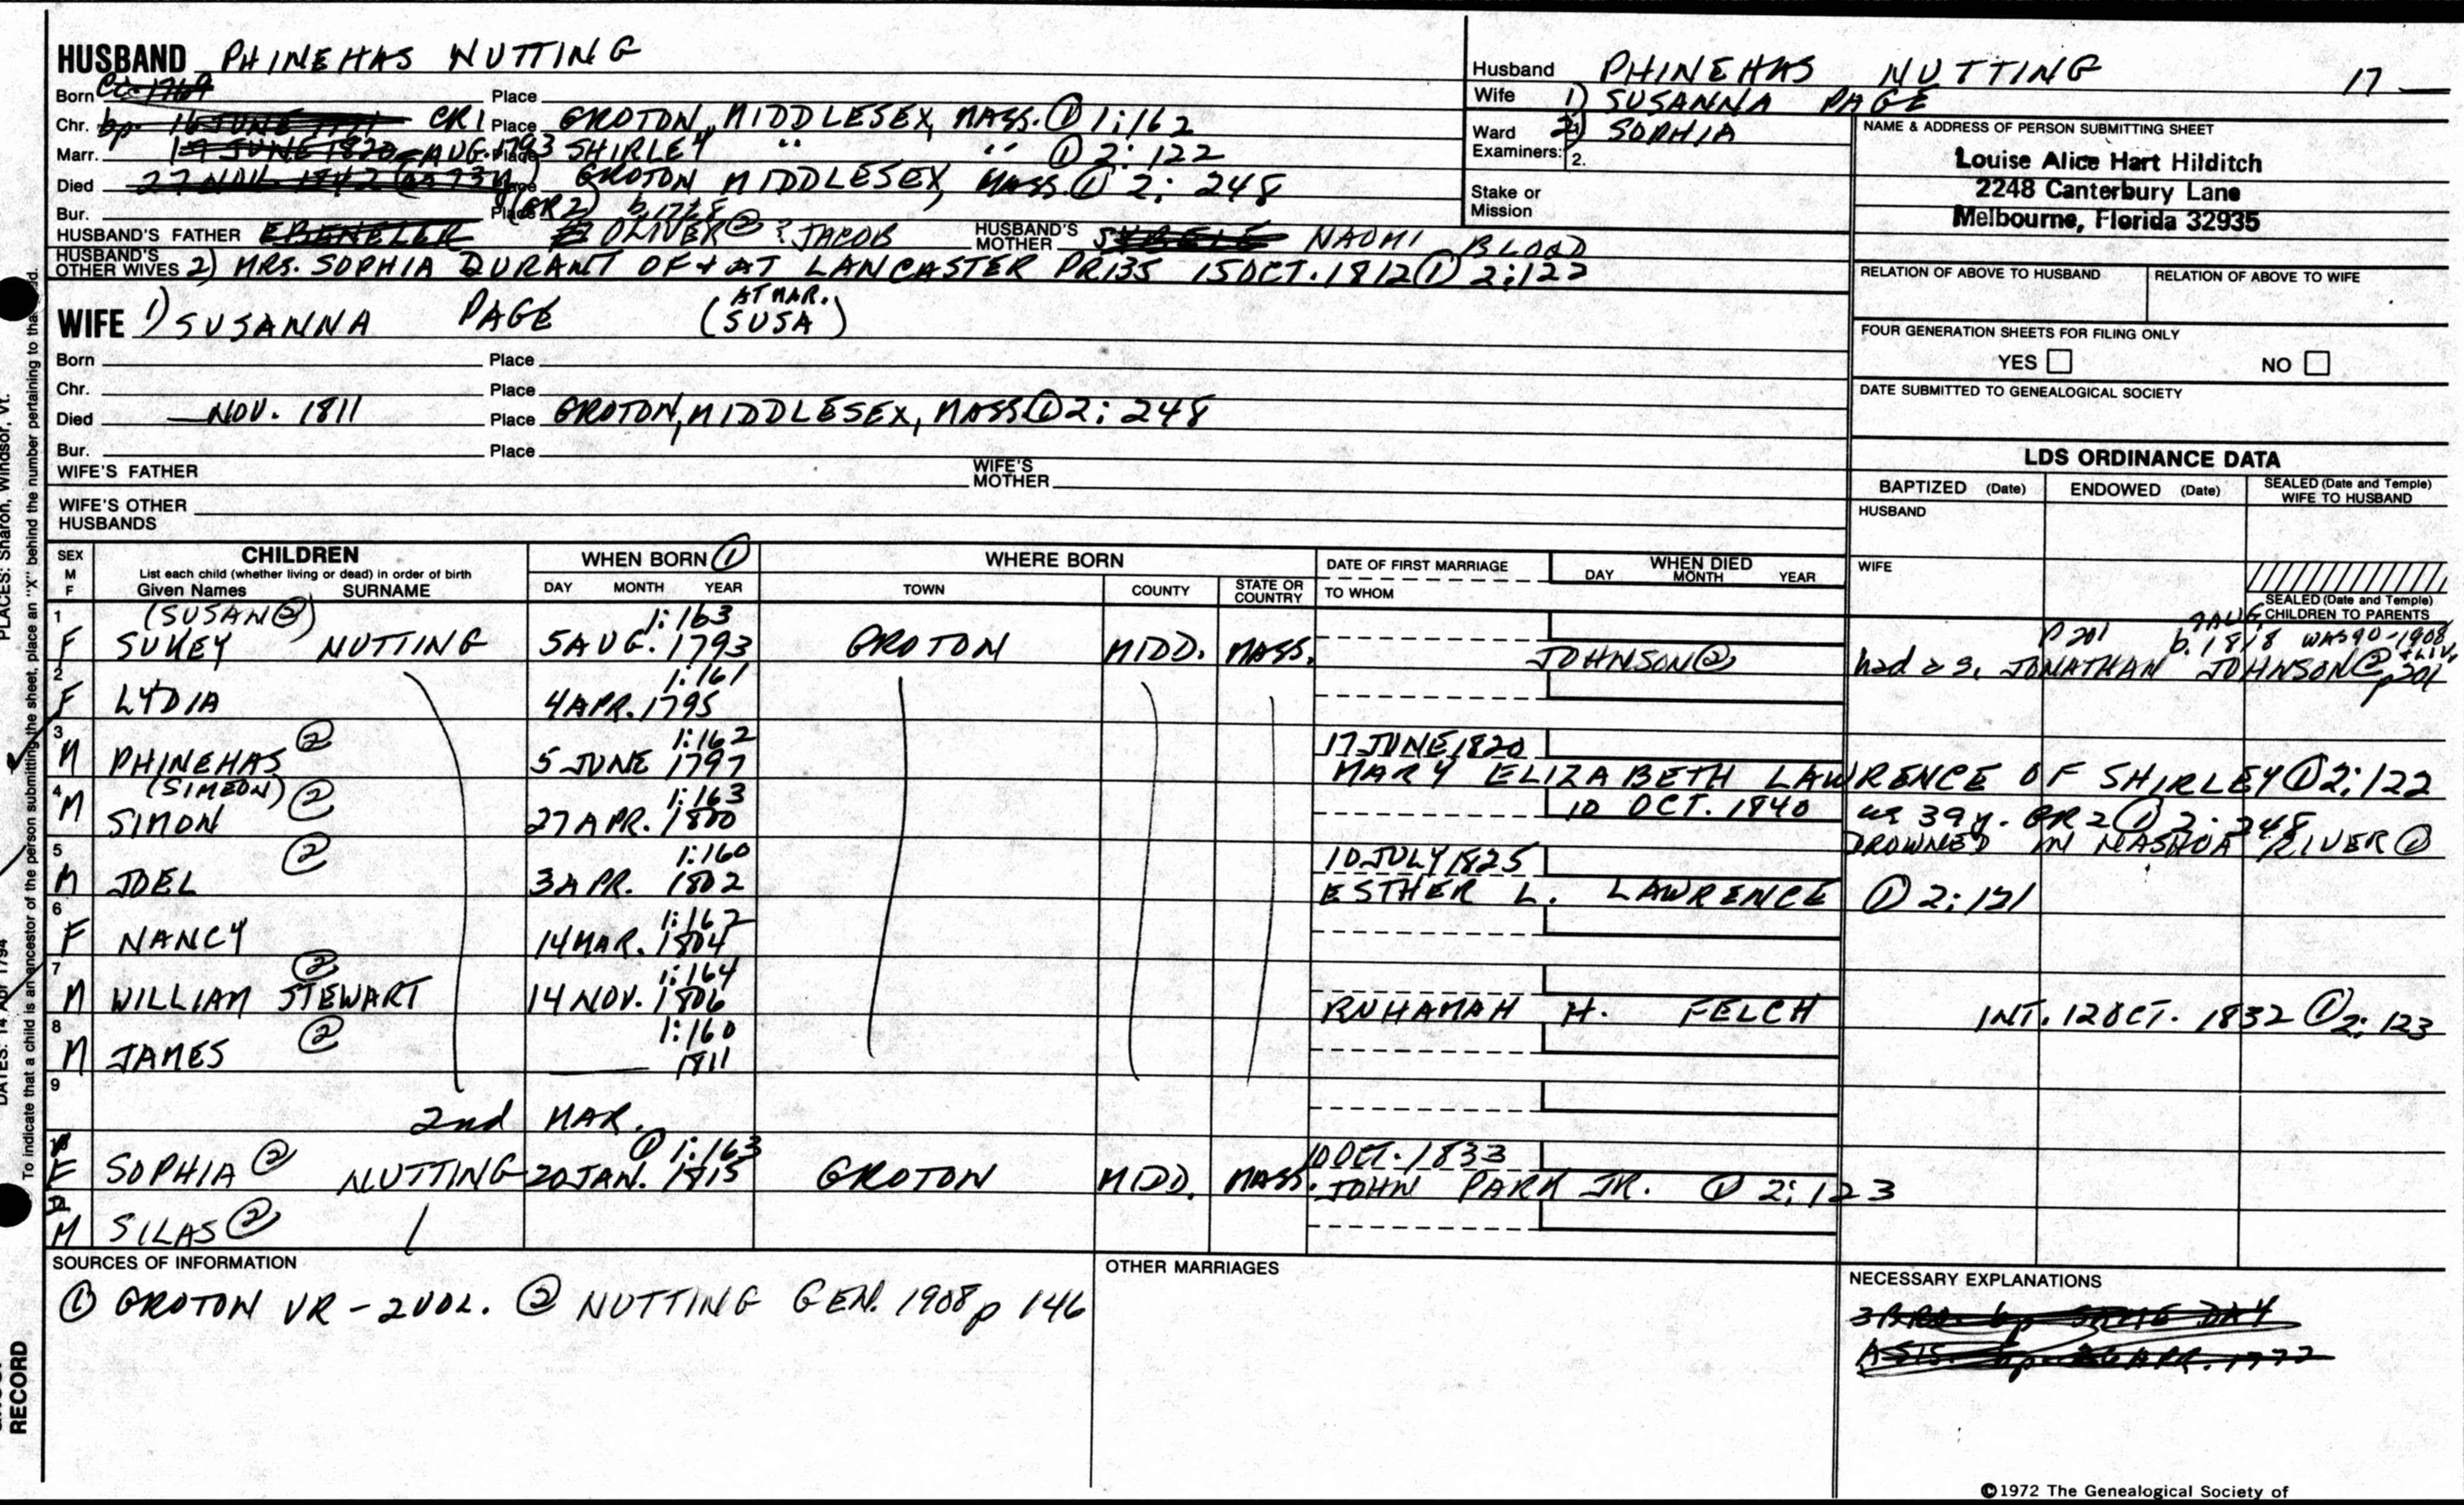 HUSBAND PHINEHAS NUTTING
Born Ca 1769 Place
Chr. bp. 16 JUNE 1771 CR1 Place GROTON, MIDDLESEX, MASS. ① 1:162
Marr. 17 JUNE 1820 AUG. 1793 Place SHIRLEY " " ① 2:122
Died 27 NOV. 1842 Place GROTON MIDDLESEX, MASS. ① 2: 248
Bur. Place (GR2) b. 1728
HUSBAND'S FATHER EBENEZER OLIVER ② ? JACOB HUSBAND'S MOTHER NAOMI BLOOD
HUSBAND'S OTHER WIVES 2) MRS. SOPHIA DURANT OF + AT LANCASTER PR135 15 OCT. 1812 ① 2:122
Husband PHINEHAS NUTTING 17
Wife 1) SUSANNA PAGE
Ward 2) SOPHIA
Examiners: 2.
Stake or
Mission
NAME & ADDRESS OF PERSON SUBMITTING SHEET
Louise Alice Hart Hilditch
2248 Canterbury Lane
Melbourne, Florida 32935
RELATION OF ABOVE TO HUSBAND RELATION OF ABOVE TO WIFE
FOUR GENERATION SHEETS FOR FILING ONLY
YES NO
DATE SUBMITTED TO GENEALOGICAL SOCIETY
WIFE 1) SUSANNA PAGE (AT MAR. SUSA)
Born Place
Chr. Place
Died NOV. 1811 Place GROTON, MIDDLESEX, MASS ① 2: 248
Bur. Place
WIFE'S FATHER WIFE'S MOTHER
WIFE'S OTHER
HUSBANDS
LDS ORDINANCE DATA
BAPTIZED (Date) ENDOWED (Date) SEALED (Date and Temple) WIFE TO HUSBAND
HUSBAND
WIFE
SEALED (Date and Temple)
CHILDREN TO PARENTS
SEX M F CHILDREN WHEN BORN ① WHERE BORN DATE OF FIRST MARRIAGE WHEN DIED
List each child (whether living or dead) in order of birth
Given Names SURNAME DAY MONTH YEAR TOWN COUNTY STATE OR COUNTRY TO WHOM DAY MONTH YEAR
1 (SUSAN ②) 1:163 p 201 b. 1818 WAS 90 - 1908
F SUKEY NUTTING 5 AUG. 1793 GROTON MIDD. MASS. JOHNSON ② had a s. JONATHAN JOHNSON ② p 201
2 1:161
F LYDIA 4 APR. 1795
3 ② 1:162 17 JUNE 1820
M PHINEHAS 5 JUNE 1797 MARY ELIZABETH LAWRENCE OF SHIRLEY ① 2:122
4 (SIMEON) ② 1:163 10 OCT. 1840 39 y. GR2 ① 2: 248
M SIMON 27 APR. 1800 DROWNED IN NASHUA RIVER ②
5 ② 1:160 10 JULY 1825
M JOEL 3 APR. 1802 ESTHER L. LAWRENCE ① 2:121
6 1:162
F NANCY 14 MAR. 1804
7 ② 1:164
M WILLIAM STEWART 14 NOV. 1806 RUHAMAH H. FELCH INT. 12 OCT. 1832 ① 2: 123
8 ② 1:160
M JAMES 1811
9
2nd MAR.
① 1:163 10 OCT. 1833
F SOPHIA ② NUTTING 20 JAN. 1815 GROTON MIDD. MASS. JOHN PARK JR. ① 2:123
M SILAS ②
SOURCES OF INFORMATION OTHER MARRIAGES NECESSARY EXPLANATIONS
① GROTON VR - 2 VOL. ② NUTTING GEN. 1908 p 146
3 BRO. bp SAME DAY
A SIS. bp. 26 APR. 1772
©1972 The Genealogical Society of
To indicate that a child is an ancestor of the person submitting the sheet, place an "X" behind the number pertaining to that
PLACES: Sharon, Windsor, Vt.
DATES: 14 Apr 1794
RECORD